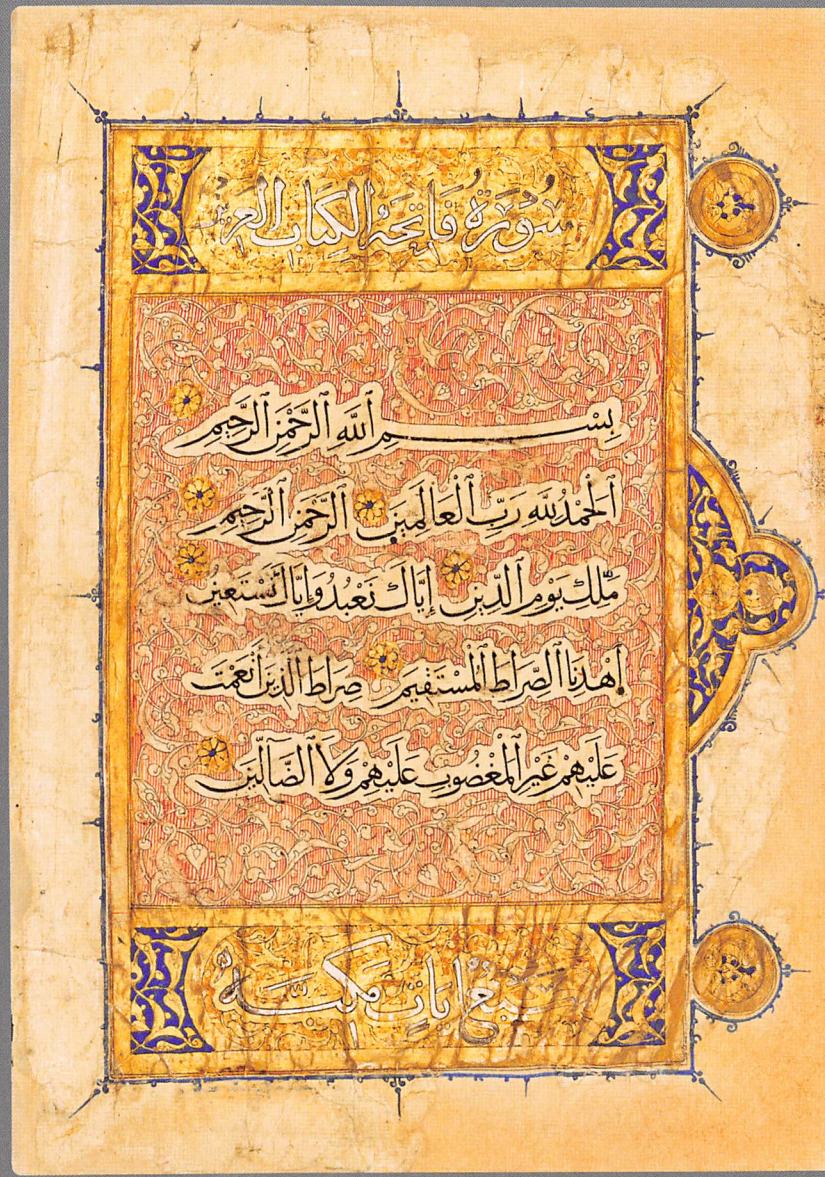 سُورَةُ فَاتِحَةِ الكِتَابِ العَزِيز
بِسْمِ ٱللَّهِ ٱلرَّحْمٰنِ ٱلرَّحِيمِ
ٱلْحَمْدُ لِلَّهِ رَبِّ ٱلْعَالَمِينَ ٱلرَّحْمٰنِ ٱلرَّحِيمِ
مَٰلِكِ يَوْمِ ٱلدِّينِ إِيَّاكَ نَعْبُدُ وَإِيَّاكَ نَسْتَعِينُ
ٱهْدِنَا ٱلصِّرَاطَ ٱلْمُسْتَقِيمَ صِرَاطَ ٱلَّذِينَ أَنْعَمْتَ
عَلَيْهِمْ غَيْرِ ٱلْمَغْضُوبِ عَلَيْهِمْ وَلَا ٱلضَّآلِّينَ
سَبْعُ اٰيَاتٍ مَكِّيَّة